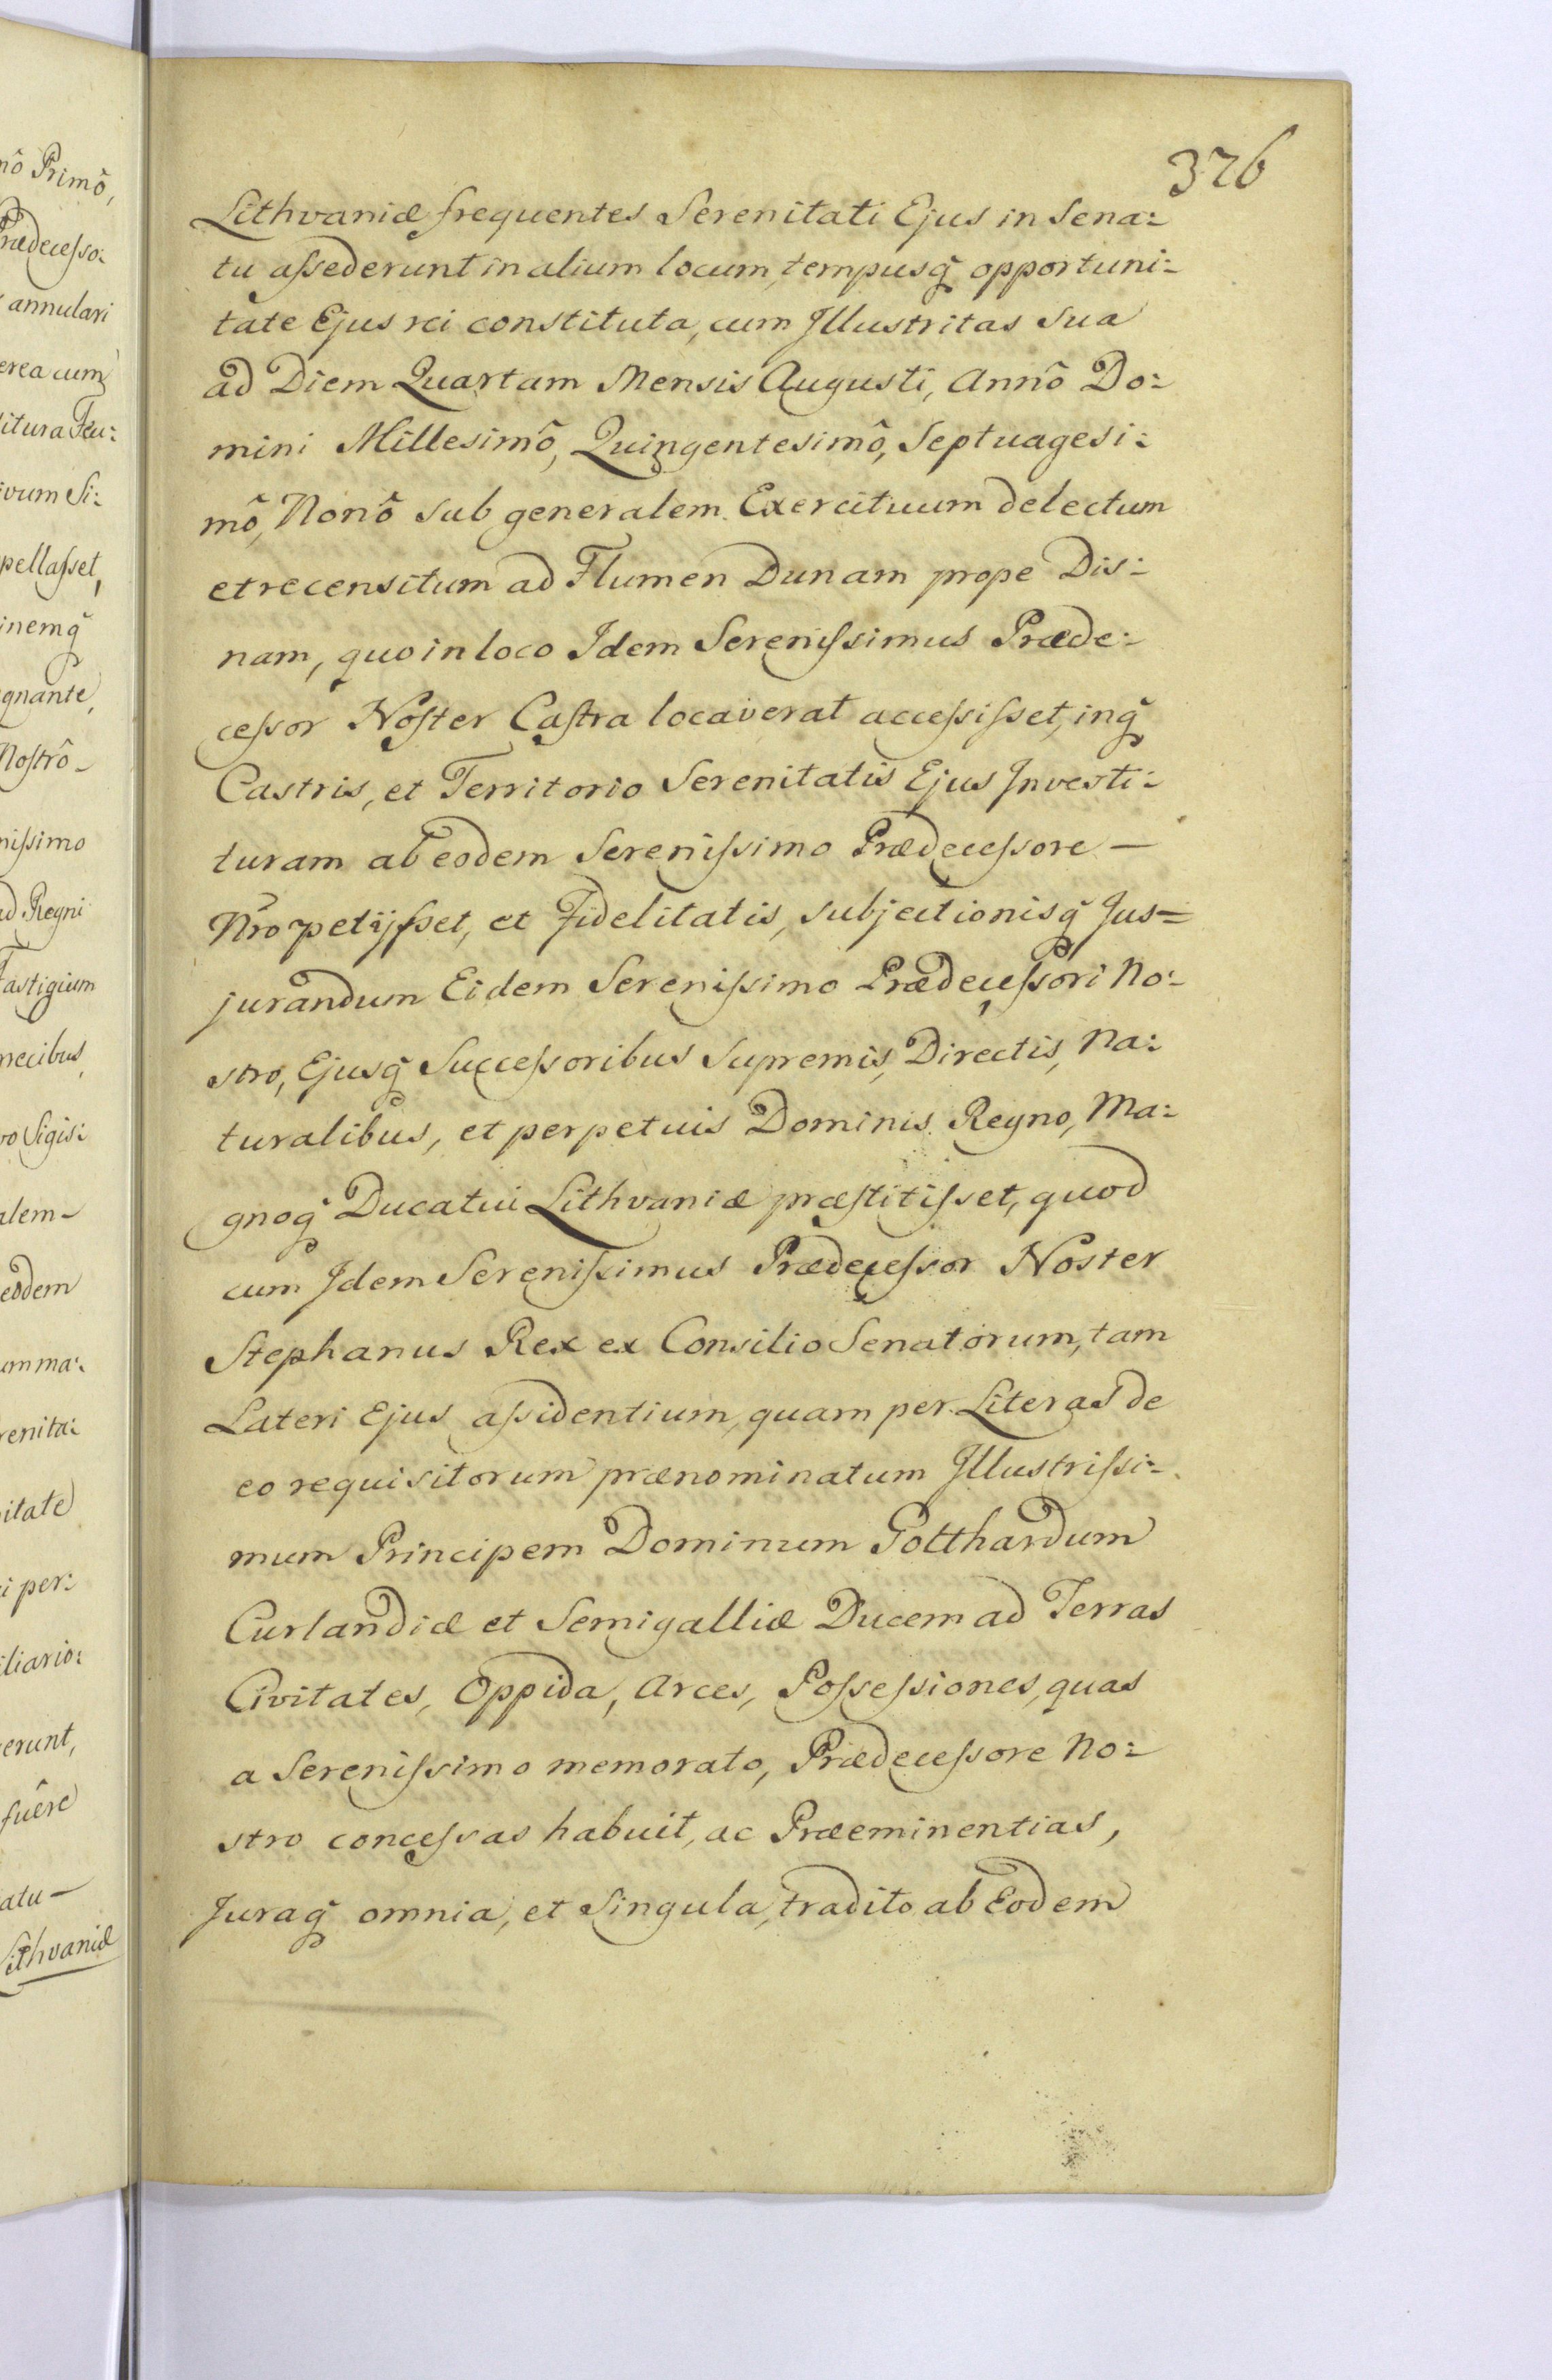 nô Primô,
Prædecesso:
annulari
erea cum
litura Feu:
ivum Si:
pellasset,
inemq̃
gnante,
Nostrô -
nissimo
ad Regni
Fastigium
necibus,
vo Sigis:
alem -
eodem
um ma:
renita:
itate
i per:
iliario:
erunt,
fuêre
atu -
Lithvaniæ
376
Lithvaniæ frequentes Serenitati Ejus in Sena:
tu assederunt in alium locum, tempusq̃ opportuni:
tate Ejus rei constituta, cum Illustritas Sua
ad Diem Quartam Mensis Augusti, Annô Do:
mini Millesimô, Quingentesimô, Septuagesi:
mô, Nonô sub generalem Exercituum delectum
et recensitum ad Flumen Dunam prope Dis:
nam, quo in loco Idem Serenissimus Præde:
cessor Noster Castra locaverat accessisset, inq̃
Castris, et Territorio Serenitatis Ejus Investi:
turam ab eodem Serenissimo Prædecessore -
Nr̃o petijsset, et Fidelitatis, subjectionisq̃ Jus=
jurandum Eidem Serenissimo Prædecessori No:
stro, Ejusq̃ Successoribus Supremis, Directis, Na:
turalibus, et perpetuis Dominis Regno, Ma:
gnoq̃ Ducatui Lithvaniæ præstitisset, quod
cum Idem Serenissimus Prædecessor Noster
Stephanus Rex ex Consilio Senatorum, tam
Lateri Ejus assidentium, quam per Literas de
eo requisitorum prænominatum Illustrissi:
mum Principem Dominum Gotthardum
Curlandiæ et Semigalliæ Ducem ad Terras
Civitates, Oppida, Arces, Possessiones, quas
a Serenissimo memorato, Prædecessore No:
stro concessas habuit, ac Præeminentias,
Juraq̃ omnia, et Singula, tradito ab Eodem